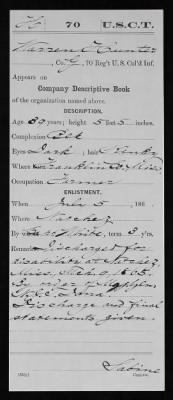 H | 70 | U.S.C.T.
Warren Hunter
, Co. G, 70 Reg't U. S. Col'd Inf.
Appears on
Company Descriptive Book
of the organization named above.
DESCRIPTION.
Age 33 years; height 5 feet 5 inches.
Complexion Blk
Eyes Dark ; hair Kinky
Where born Franklin Co, Miss,
Occupation Farmer
ENLISTMENT.
When July 5, 186
Where Natchez
By White, term 3 y'rs.
Remarks: Discharged for
disability at Natchez,
Miss, Mch. 1865.
By order of
Discharge and final
statements given.
Sabine
Copyist.